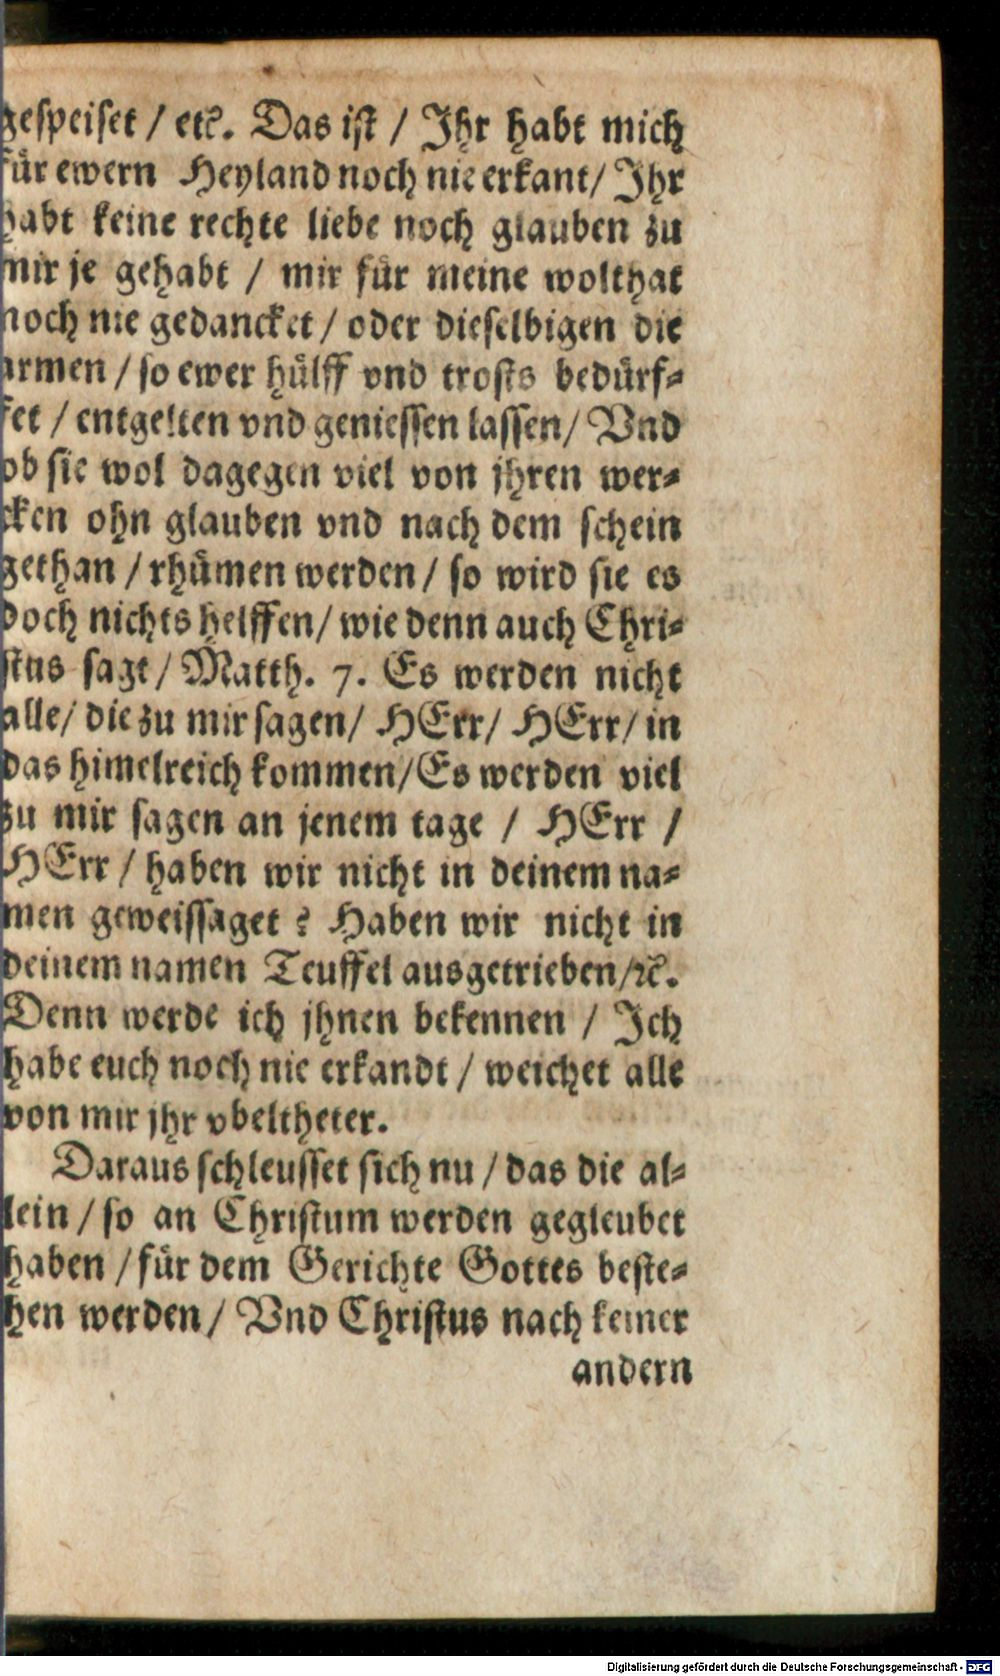 gespeiset / etc. Das ist / Ihr habt mich
für ewern Heyland noch nie erkant / Ihr
habt keine rechte liebe noch glauben zu
mir je gehabt / mir für meine wolthat
noch nie gedancket / oder dieselbigen die
armen / so ewer hülff vnd trosts bedürf-
fet / entgelten vnd geniessen lassen / Vnd
ob sie wol dagegen viel von jhren wer-
cken ohn glauben vnd nach dem schein
gethan / rhümen werden / so wird sie es
doch nichts helffen / wie denn auch Chri-
stus sagt / Matth. 7. Es werden nicht
alle / die zu mir sagen / HErr / HErr / in
das himelreich kommen / Es werden viel
zu mir sagen an jenem tage / HErr /
HErr / haben wir nicht in deinem na-
men geweissaget ? Haben wir nicht in
deinem namen Teuffel ausgetrieben / ꝛc.
Denn werde ich jhnen bekennen / Ich
habe euch noch nie erkandt / weichet alle
von mir jhr vbeltheter.
Daraus schleusset sich nu / das die al-
lein / so an Christum werden gegleubet
haben / für dem Gerichte Gottes beste-
hen werden / Vnd Christus nach keiner
andern
Digitalisierung gefördert durch die Deutsche Forschungsgemeinschaft - DFG